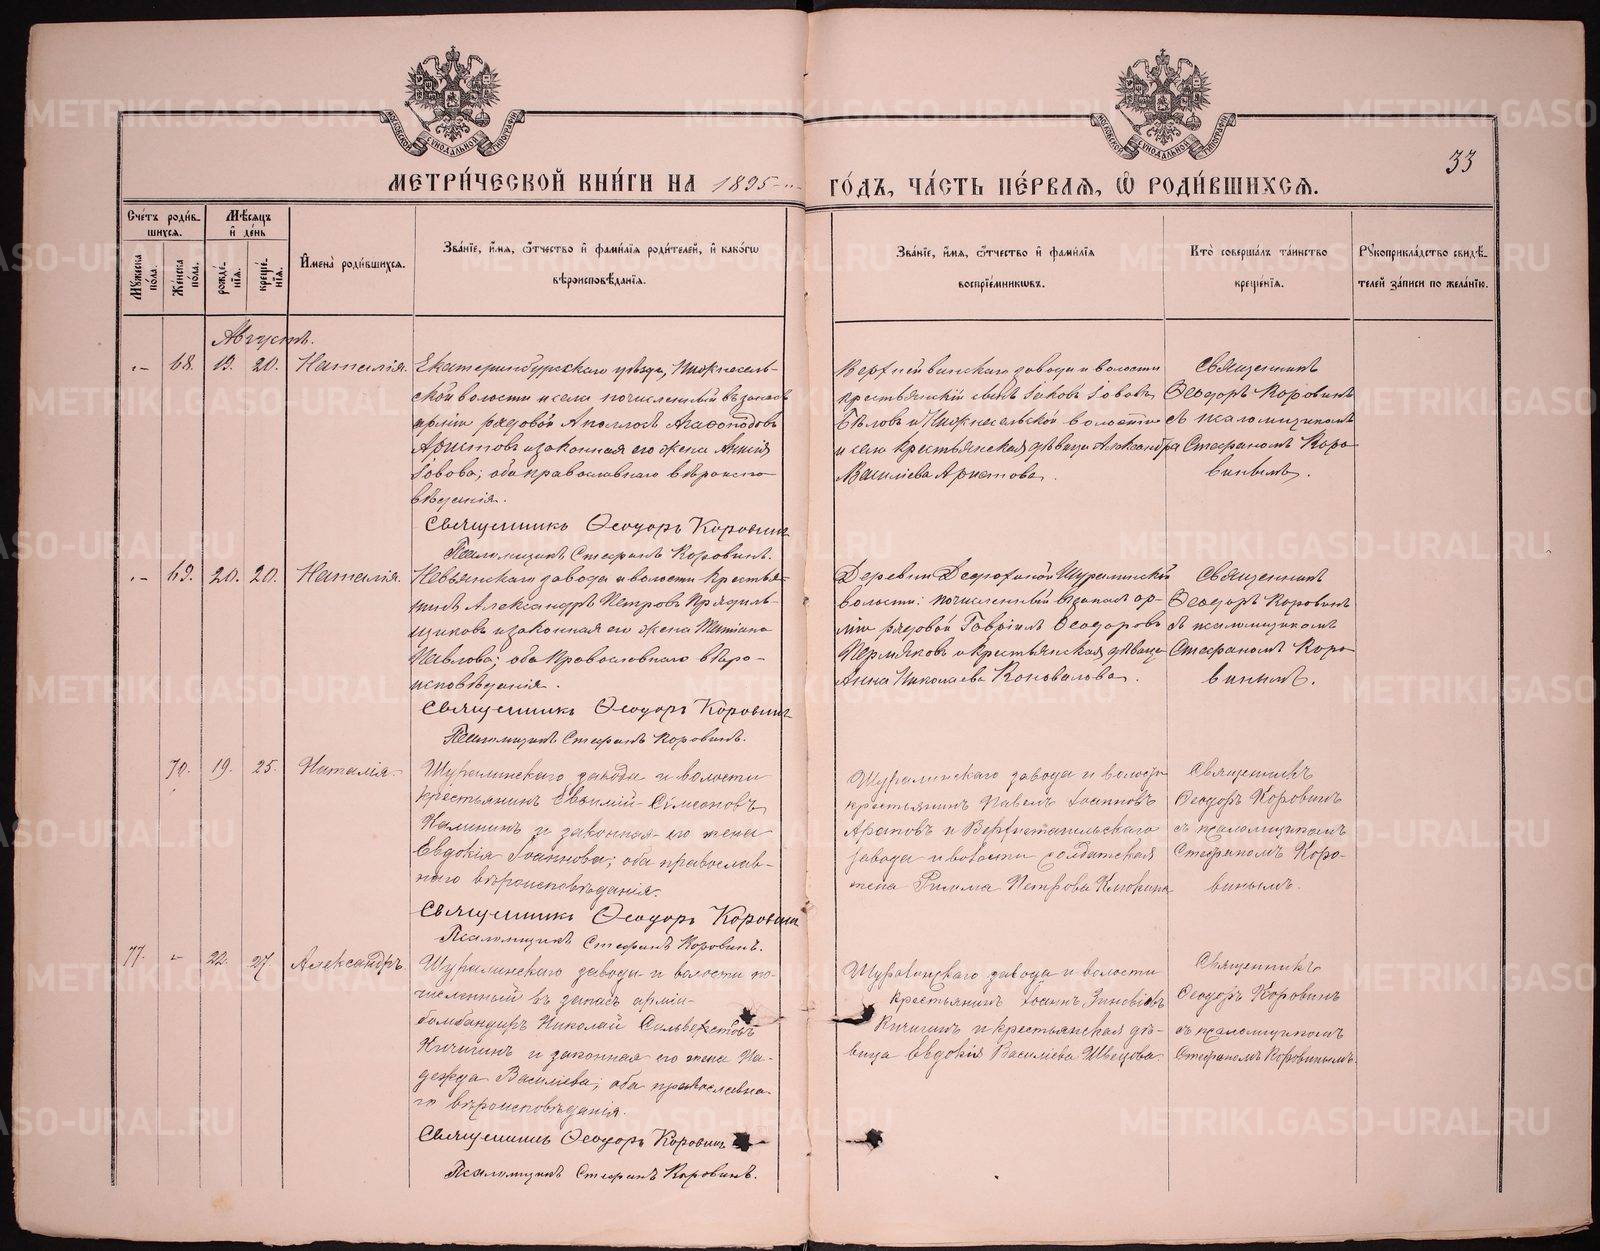 МОСКОВСКОЙ СѴНОДАЛЬНОЙ ТИПОГРАФІИ
МОСКОВСКОЙ СѴНОДАЛЬНОЙ ТИПОГРАФІИ
33
МЕТРИ́ЧЕСКОЙ КНИ́ГИ НА 1895 ГО́ДЪ, ЧА́СТЬ ПЕ́РВАѦ, Ѽ РОДИ́ВШИХСѦ.
Сче́тъ роди́вшихсѧ.
Му́жеска по́ла.
Же́нска по́ла.
Мѣ́сѧцъ и҆ де́нь
рожде́нїѧ.
креще́нїѧ.
И҆мена̀ роди́вшихсѧ.
Зва́нїе, и҆́мѧ, ѻ҆́тчество и҆ фами́лїѧ роди́телей, и҆ како́гѡ вѣроисповѣ́данїѧ.
Зва́нїе, и҆́мѧ, ѻ҆́тчество и҆ фами́лїѧ воспрїе́мникѡвъ.
Кто̀ соверша́лъ та́инство креще́нїѧ.
Рꙋкоприкла́дство свидѣ́телей за́писи по жела́нїю.
Августъ.
68. 19. 20. Наталія.
Екатеринбургскаго уѣзда, Нижнесель-
ской волости и села почисленный въ запасъ
арміи рядовой Аполлосъ Агафоподовъ
Аристовъ и законная его жена Анисія
Іовова; оба православнаго вѣроиспо-
вѣданія.
Священникъ Ѳеодоръ Коровинъ
Псаломщикъ Стефанъ Коровинъ.
Верхнейвинскаго завода и волости
крестьянскій сынъ Іаковъ Іововъ
Бѣловъ и Нижнесельской волости
и села крестьянская дѣвица Александра
Василіева Аристова.
Священникъ
Ѳеодоръ Коровинъ
съ псаломщикомъ
Стефаномъ Коро-
винымъ.
69. 20. 20. Наталія.
Невьянскаго завода и волости крестья-
нинъ Александръ Петровъ Прядиль-
щиковъ и законная его жена Татіана
Павлова; оба православнаго вѣро-
исповѣданія.
Священникъ Ѳеодоръ Коровинъ
Псаломщикъ Стефанъ Коровинъ.
Деревни Шуралинской
волости: почисленный въ запасъ ар-
міи рядовой Гавріилъ Ѳеодоровъ
Пермяковъ и крестьянская дѣвица
Анна Николаева Коновалова.
Священникъ
Ѳеодоръ Коровинъ
съ псаломщикомъ
Стефаномъ Коро-
винымъ.
70. 19. 25. Наталія.
Шуралинскаго завода и волости
крестьянинъ Евѳимій Сѵмеоновъ
Калининъ и законная его жена
Евдокія Іоаннова; оба православ-
наго вѣроисповѣданія.
Священникъ Ѳеодоръ Коровинъ
Псаломщикъ Стефанъ Коровинъ.
Шуралинскаго завода и волости
крестьянинъ Павелъ Іоанновъ
Араповъ и Верхнетагильскаго
завода и волости солдатская
жена Петрова Клюкина
Священникъ
Ѳеодоръ Коровинъ
съ псаломщикомъ
Стефаномъ Коро-
винымъ.
77. 22. 27. Александръ.
Шуралинскаго завода и волости по-
численный въ запасъ арміи
бомбандиръ Николай Сильверстовъ
Кичигинъ и законная его жена На-
дежда Василіева; оба православна-
го вѣроисповѣданія.
Священникъ Ѳеодоръ Коровинъ
Псаломщикъ Стефанъ Коровинъ.
Шуралинскаго завода и волости
крестьянинъ Іоаннъ Зиновіевъ
Кичигинъ и крестьянская дѣ-
вица Евдокія Василіева Швецова.
Священникъ
Ѳеодоръ Коровинъ
съ псаломщикомъ
Стефаномъ Коровинымъ.
METRIKI.GASO-URAL.RU